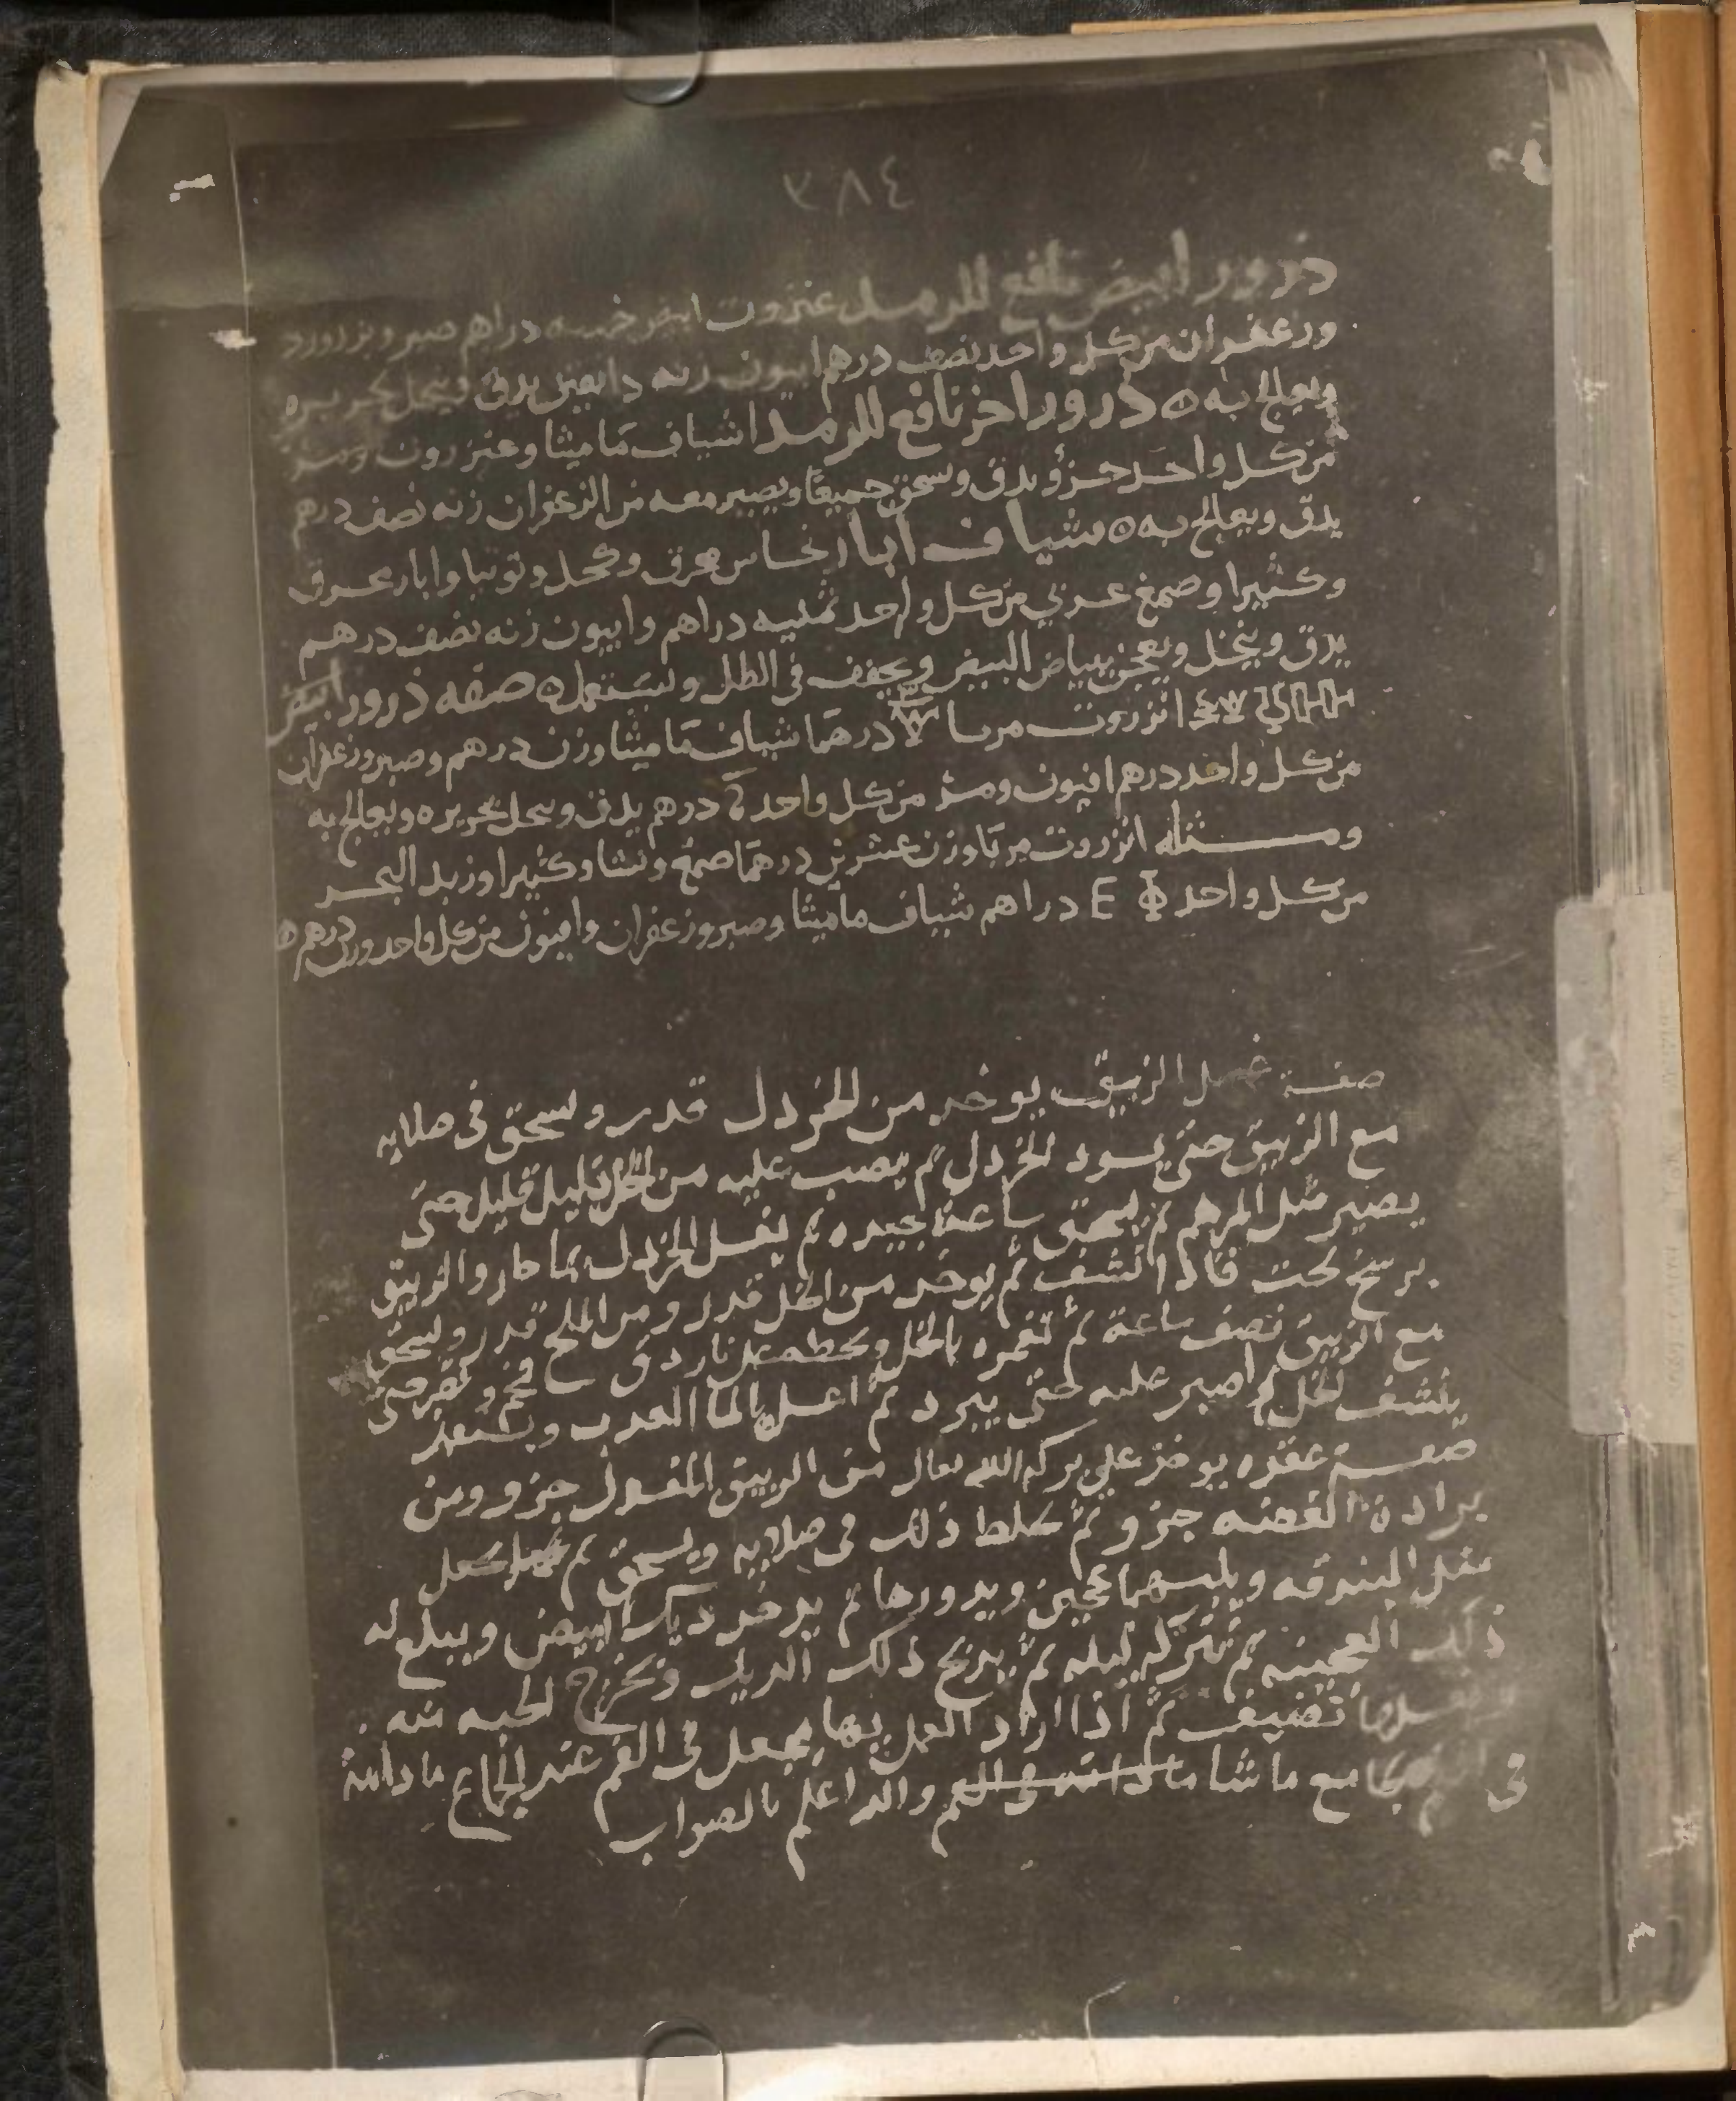 ٣٨٤
درور ابيض نافع للرمد عنزروت ابيض خمسه دراهم صبر وبزرورد
وزعفران من كل واحد نصف درهم ابيون زنه دانقين يدق وينخل بحريره
ويعالج به ه درور اخر نافع للرمد اشياف ماميثا وعنزروت ومر
من كل واحد جزؤ يدق وسحق جميعا ويصير معه من الزعفران زنه نصف درهم
يدق ويعالج به ه شياف ابار نحاس محرق وكحل وتوتيا وابار محروق
وكثيرا وصمغ عربي من كل واحد ثمنيه دراهم وابيون زنه نصف درهم
يدق وينخل ويعجن ببياض البيض ويجفف في الظل ويستعمل ه صفه ذرور ابيض
انزروت مربا درهما شياف ماميثا وزن درهم وصبر وزعفران
من كل واحد درهم افيون ومر من كل واحد درهم يدق وينخل بحريره ويعالج به
ومــثله انزروت مربا وزن عشرين درهما صمغ ونشا وكثيرا وزبد البحر
من كل واحد دراهم شياف ماميثا وصبر وزعفران وافيون من كل واحد وزن درهم ه
صفة غسل الزيبق يوخد من الخردل قدر وسحق في صلايه
مع الزيبق حتى يسود الخردل ثم يصب عليه من الخل قليل قليل حتى
يصير مثل المرهم ثم يسحق ساعة جيده ثم يغسل الخردل بما حار والزيبق
يرسخ تحت فاذا انشف ثم يوخد من الخل قدر ومن الملح قدر وسحق
مع الزيبق نصف ساعة ثم تغمره بالخل وتحطه على نار دق فحم حتى
ينشف الخل ثم اصبر عليه حتى يبرد ثم اغسل بالما العدب
صفــة عقده يوخد على بركة الله تعالى من الزيبق المغسول جزو ومن
برادة الفضه جزو ثم تخلط ذلك في صلايه ويسحق ثم
مثل البندقه ويلبسها عجين ويدورها ثم يوخد ديك ابيض ويبلع له
ذلك العجينه ثم تتركه ليله ثم يدبح ذلك الديك وتخرج الحبه منه
تضيف ثم اذا اراد العمل بها يجعل في الفم عند الجماع ما دامت
في الفم يجامع ما شا والله اعلم بالصواب